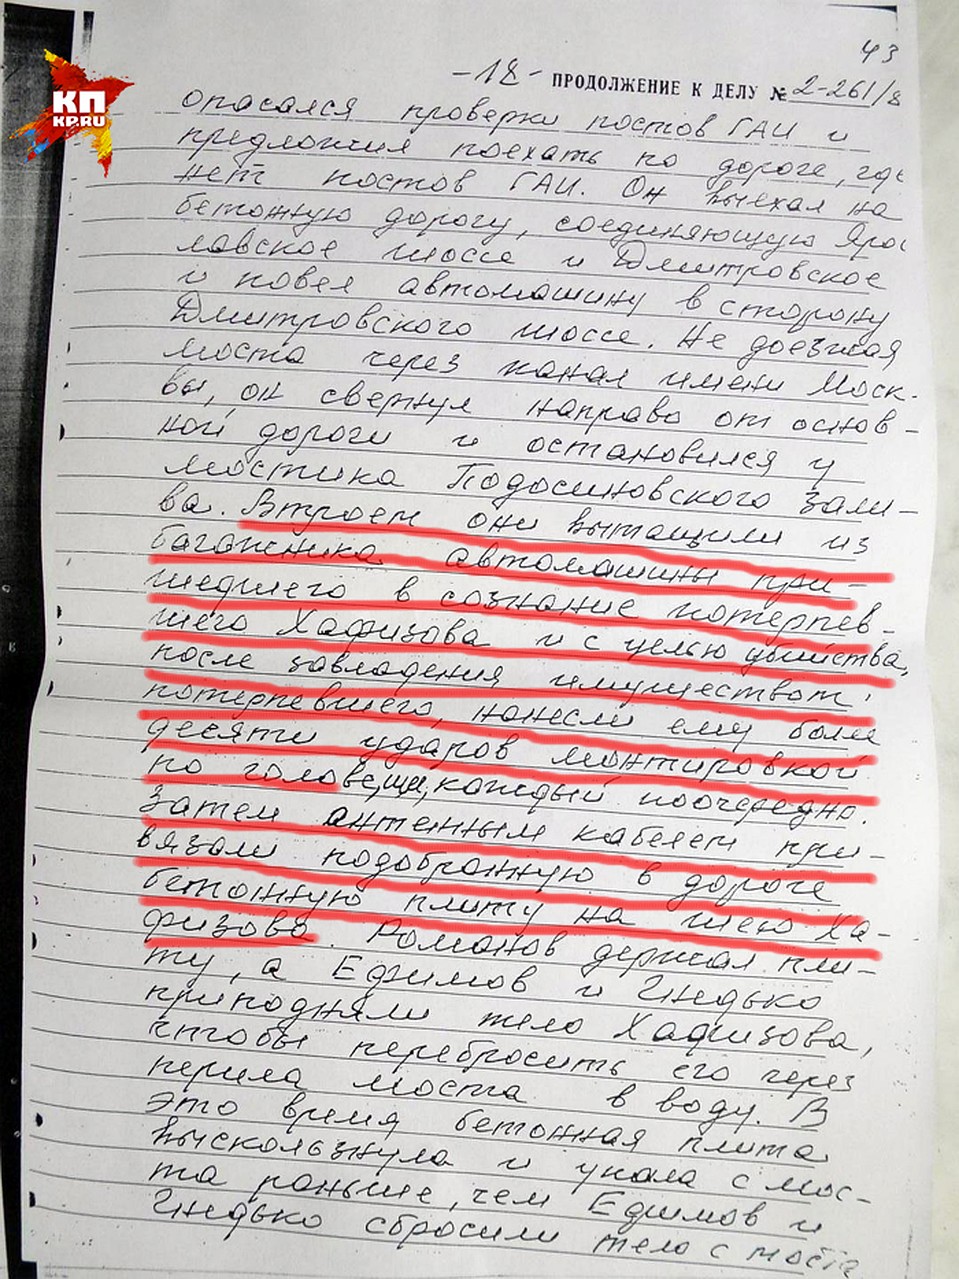 43
КП
KP.RU
-18- ПРОДОЛЖЕНИЕ К ДЕЛУ № 2-261/8
опасался проверки постов ГАИ и
предложил поехать по дороге, где
нет постов ГАИ. Он выехал на
бетонную дорогу, соединяющую Ярос
лавское шоссе и Дмитровское
и повел автомашину в сторону
Дмитровского шоссе. Не доезжая
моста через канал имени Моск-
вы, он свернул направо от основ-
ной дороги и остановился у
мостика Подосиновского зали-
ва. Втроем они вытащили из
багажника автомашины при-
шедшего в сознание потерпев-
шего Хафизова и с целью убийства,
после завладения имуществом
потерпевшего, нанесли ему более
десяти ударов монтировкой
по голове, каждый поочередно.
Затем антенным кабелем при-
вязали подобранную в дороге
бетонную плиту на шею Ха-
физова. Романов держал пли-
ту, а Ефимов и Гнедько
приподняли тело Хафизова,
чтобы перебросить его через
перила моста в воду. В
это время бетонная плита
выскользнула и упала с мос-
та раньше, чем Ефимов и
Гнедько сбросили тело с моста